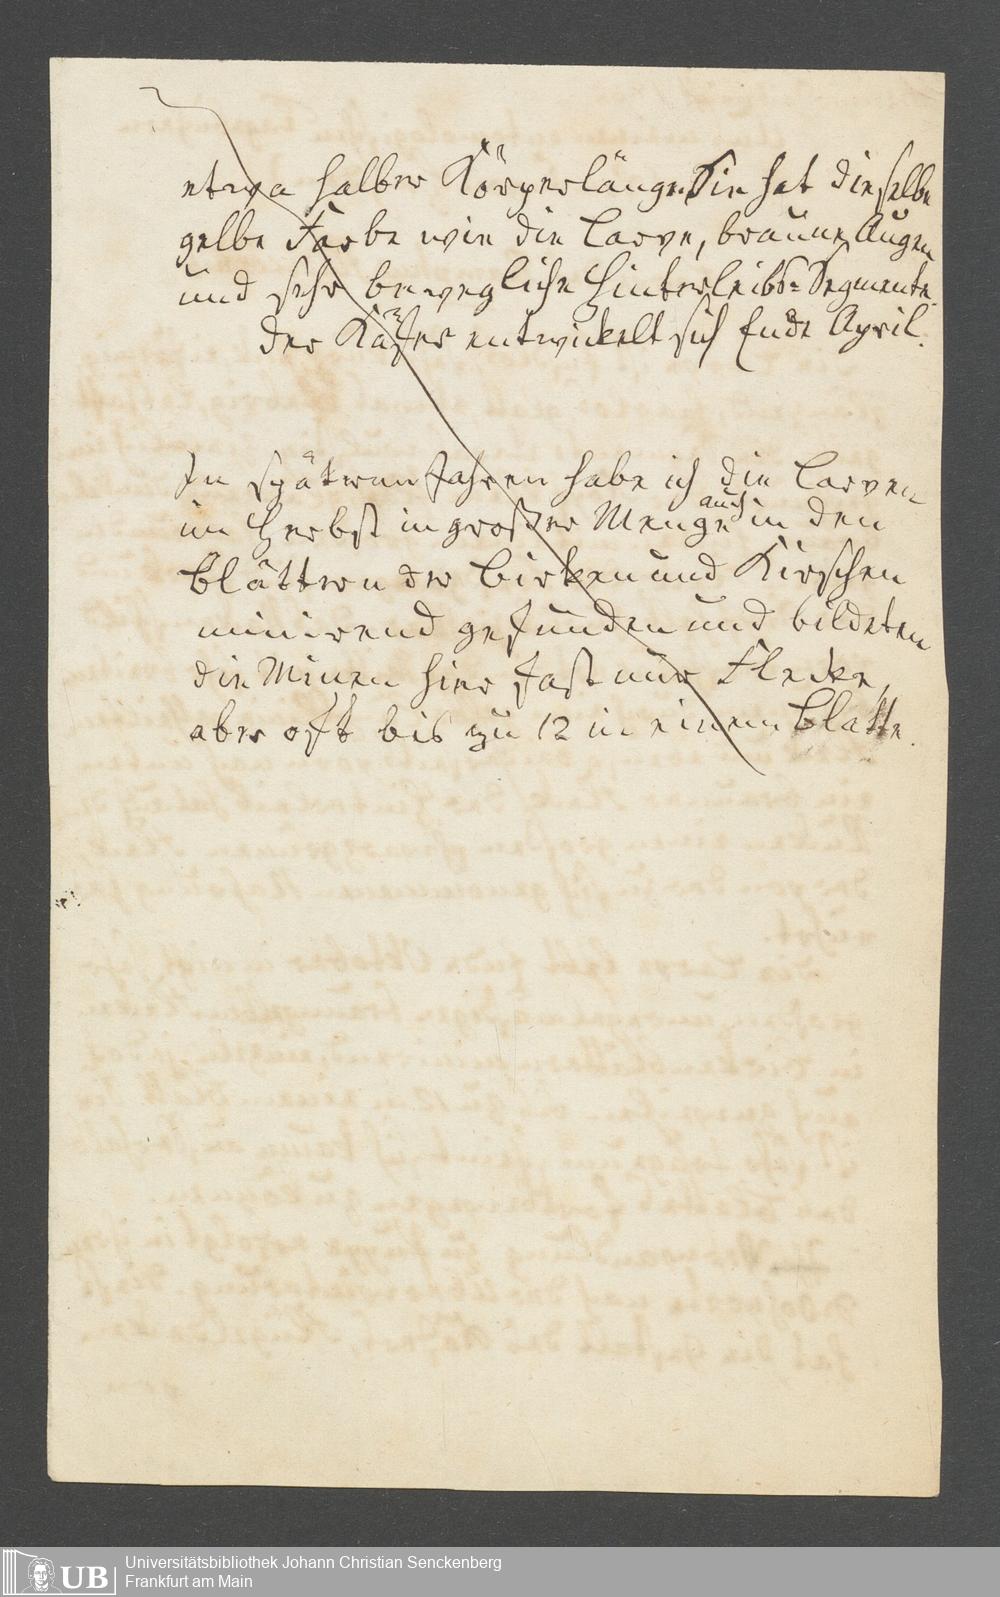 etwa halber Körperlänge. Sie hat dieselbe
gelbe Farbe wie die Larve, braune Augen
und sehr bewegliche Hinterleibs-Segmente.
der Käfer entwickelt sich Ende April.
In späteren Jahren habe ich die Larven
im Herbst in großer Menge auch in den
Blättern der Birken und Kirschen
minirend gefunden und bildeten
die Minen hier fast nur Flecke,
aber oft bis zu 12 in einem Blatte.
Universitätsbibliothek Johann Christian Senckenberg
Frankfurt am Main
UB